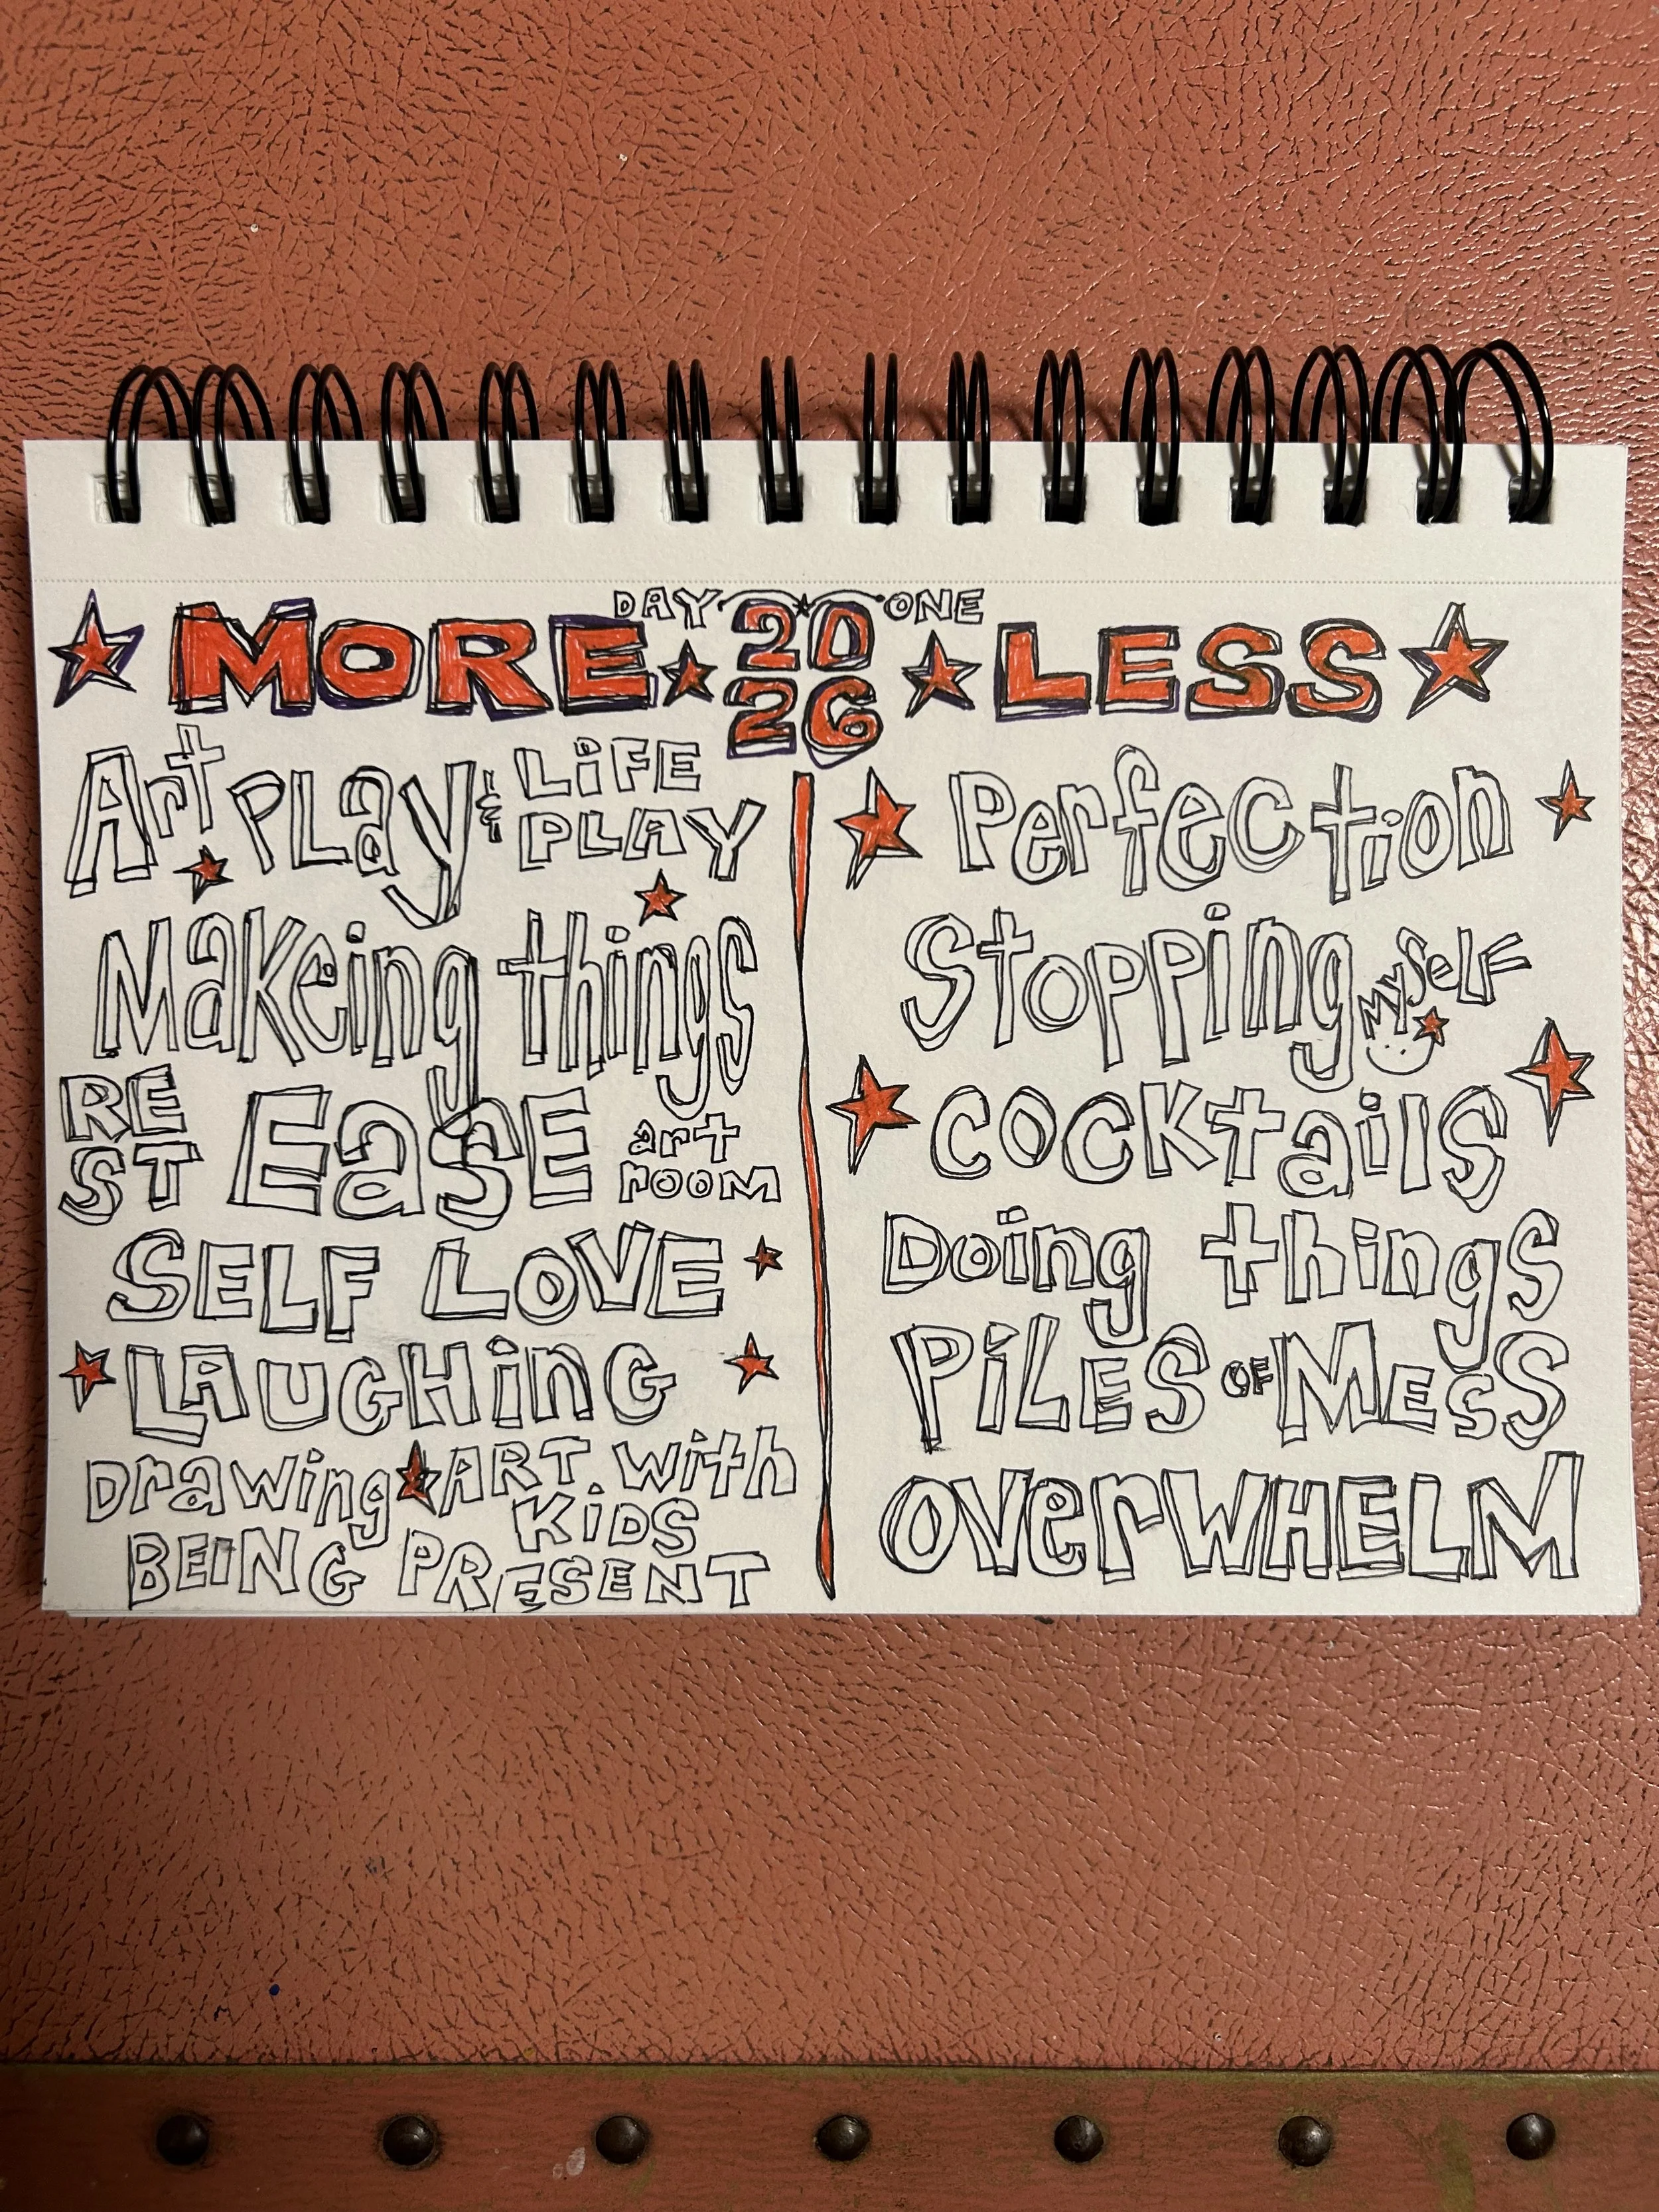 DAY ONE
MORE 2026 LESS
Art PLay & LiFE PLAY
Makeing things
REST EasE art room
SELF LOVE
LAUGHinG
Drawing & ART with KiDS
BEING PRESENT
Perfection
Stopping MYSeLF
COCKtails
Doing things
PiLES OF MESS
OVerWHELM